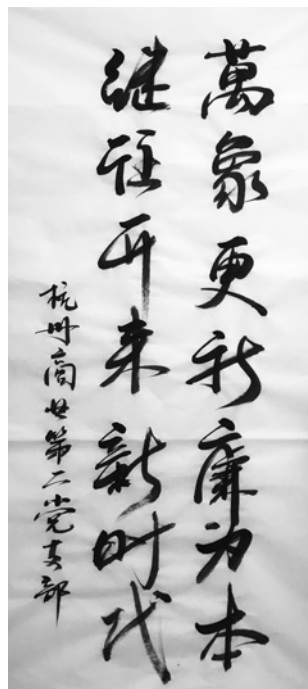 萬象更新廉为本
继往开来新时代
杭州商女第二党支部